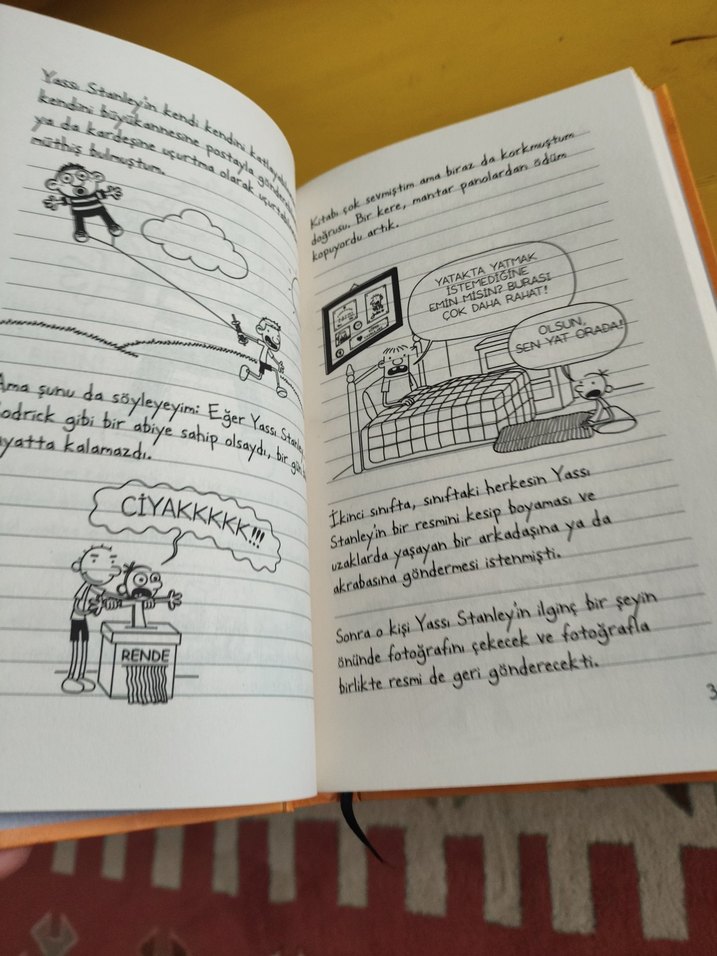 Yassı Stanley'in kendi kendini
kendini büyükannesine postayla
ya da kardeşine uçurtma olarak
müthiş bulmuştum.
Ama şunu da söyleyeyim: Eğer Yassı
gibi bir abiye sahip olsaydı, bir
kalamazdı.
CİYAKKKKK!!!
RENDE
Kitabı çok sevmiştim ama biraz da korkmuştum
doğrusu. Bir kere, mantar panolardan ödüm
kopuyordu artık.
YATAKTA YATMAK
İSTEMEDİĞİNE
EMİN MİSİN? BURASI
ÇOK DAHA RAHAT!
OLSUN,
SEN YAT ORADA!
İkinci sınıfta, sınıftaki herkesin Yassı
Stanley'in bir resmini kesip boyaması ve
uzaklarda yaşayan bir arkadaşına ya da
akrabasına göndermesi istenmişti.
Sonra o kişi Yassı Stanley'in ilginç bir şeyin
önünde fotoğrafını çekecek ve fotoğrafla
birlikte resmi de geri gönderecekti.